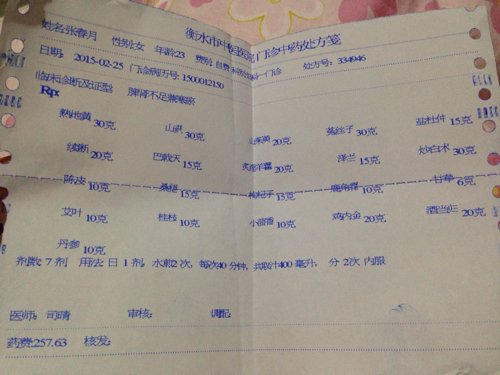 衡水市中医医院门诊中药处方笺
姓名:张春月 性别:女 年龄:23 费别:自费
日期: 2015-02-25 门诊病历号:1500012150 处方号: 334946
临床诊断及证型 脾肾不足兼瘀
Rp:
熟地黄 30克 山药 30克 山茱萸 20克 菟丝子 30克 盐杜仲 15克
续断 20克 巴戟天 15克 炙淫羊藿 20克 泽兰 15克 炒白术 30克
陈皮 10克 桑椹 15克 枸杞子 15克 鹿角霜 10克 甘草 6克
艾叶 10克 桂枝 10克 小茴香 10克 鸡内金 20克 酒当归 20克
丹参 10克
剂数: 7 剂 用法: 日 1 剂, 水煎2 次, 每次40 分钟, 共取汁400 毫升, 分 2次 内服
医师: 司晴 审核: 调配:
药费:257.63 核发: